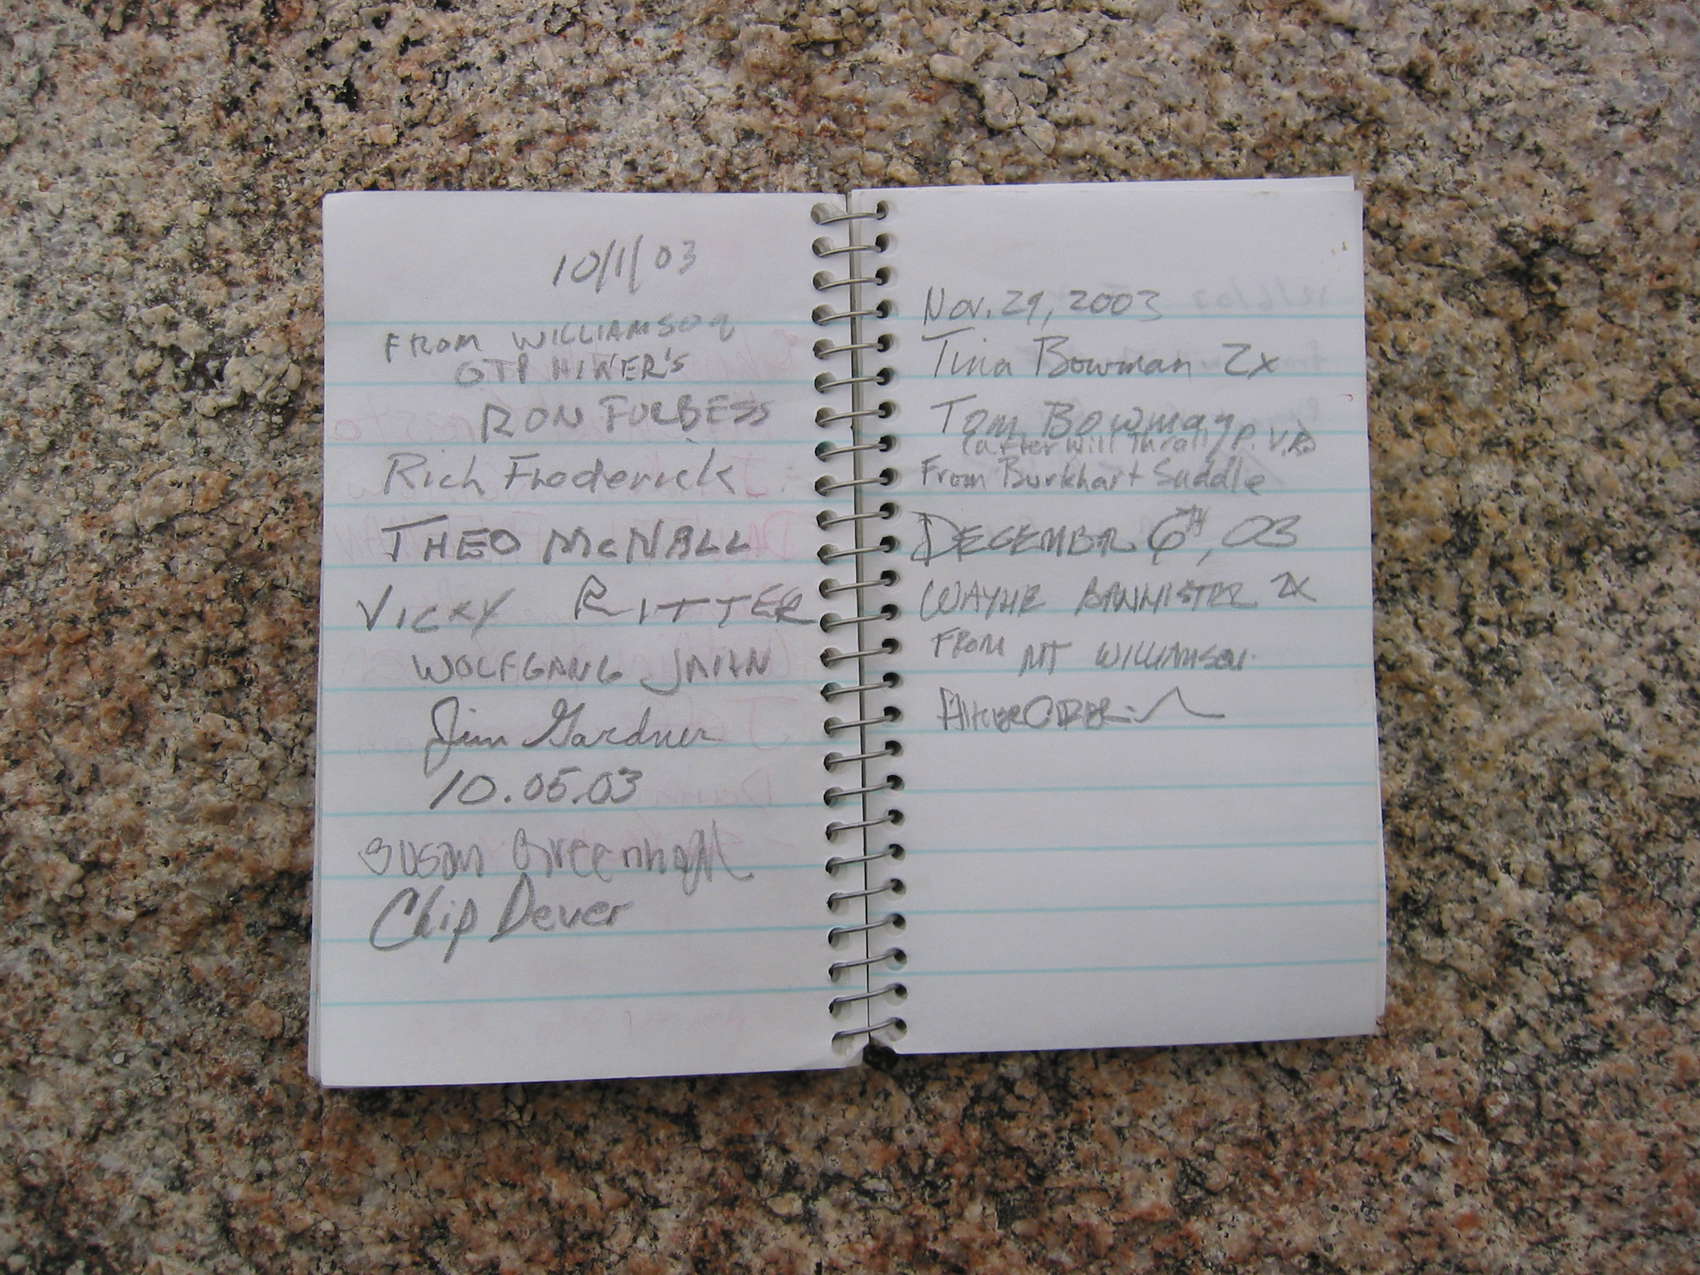 10/1/03
FROM WILLIAMSON
GTP HIKER'S
RON FURBESS
Rich Frederick
THEO McNALL
VICKY RITTER
WOLFGANG JAHN
Jim Gardner
10.05.03
Susan Greenhall
Chip Dever
Nov. 29, 2003
Tina Bowman 2x
Tom Bowman
(after Will Thrall, P. V.B)
From Burkhart Saddle
DECEMBR 6TH, 03
WAYNE BANNISTER 2X
FROM MT WILLIAMSON